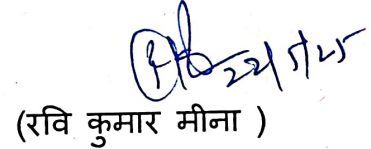 22/5/25
(रवि कुमार मीना )